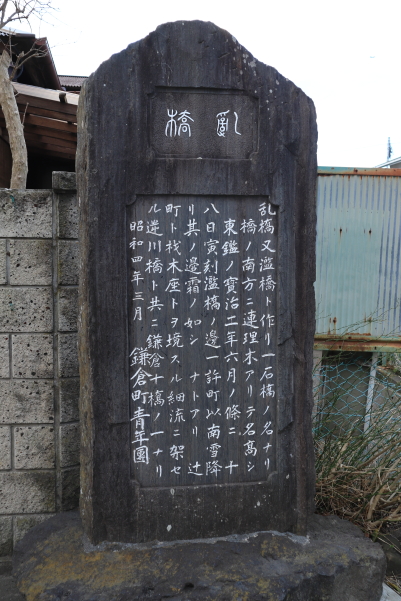 亂橋
乱橋又濫橋ト作リ一石橋ノ名ナリ
橋ノ南方ニ連理木アリテ名高シ
東鑑ノ宝治二年六月ノ條ニ 十
八日寅刻濫橋ノ邊一許町以南雪降
リ其ノ邊霜ノ如シ ナトアリ 辻
町ト材木座トヲ境スル細流ニ架セ
ル逆川橋ト共ニ鎌倉十橋ノ一ナリ
昭和四年三月 鎌倉町青年團